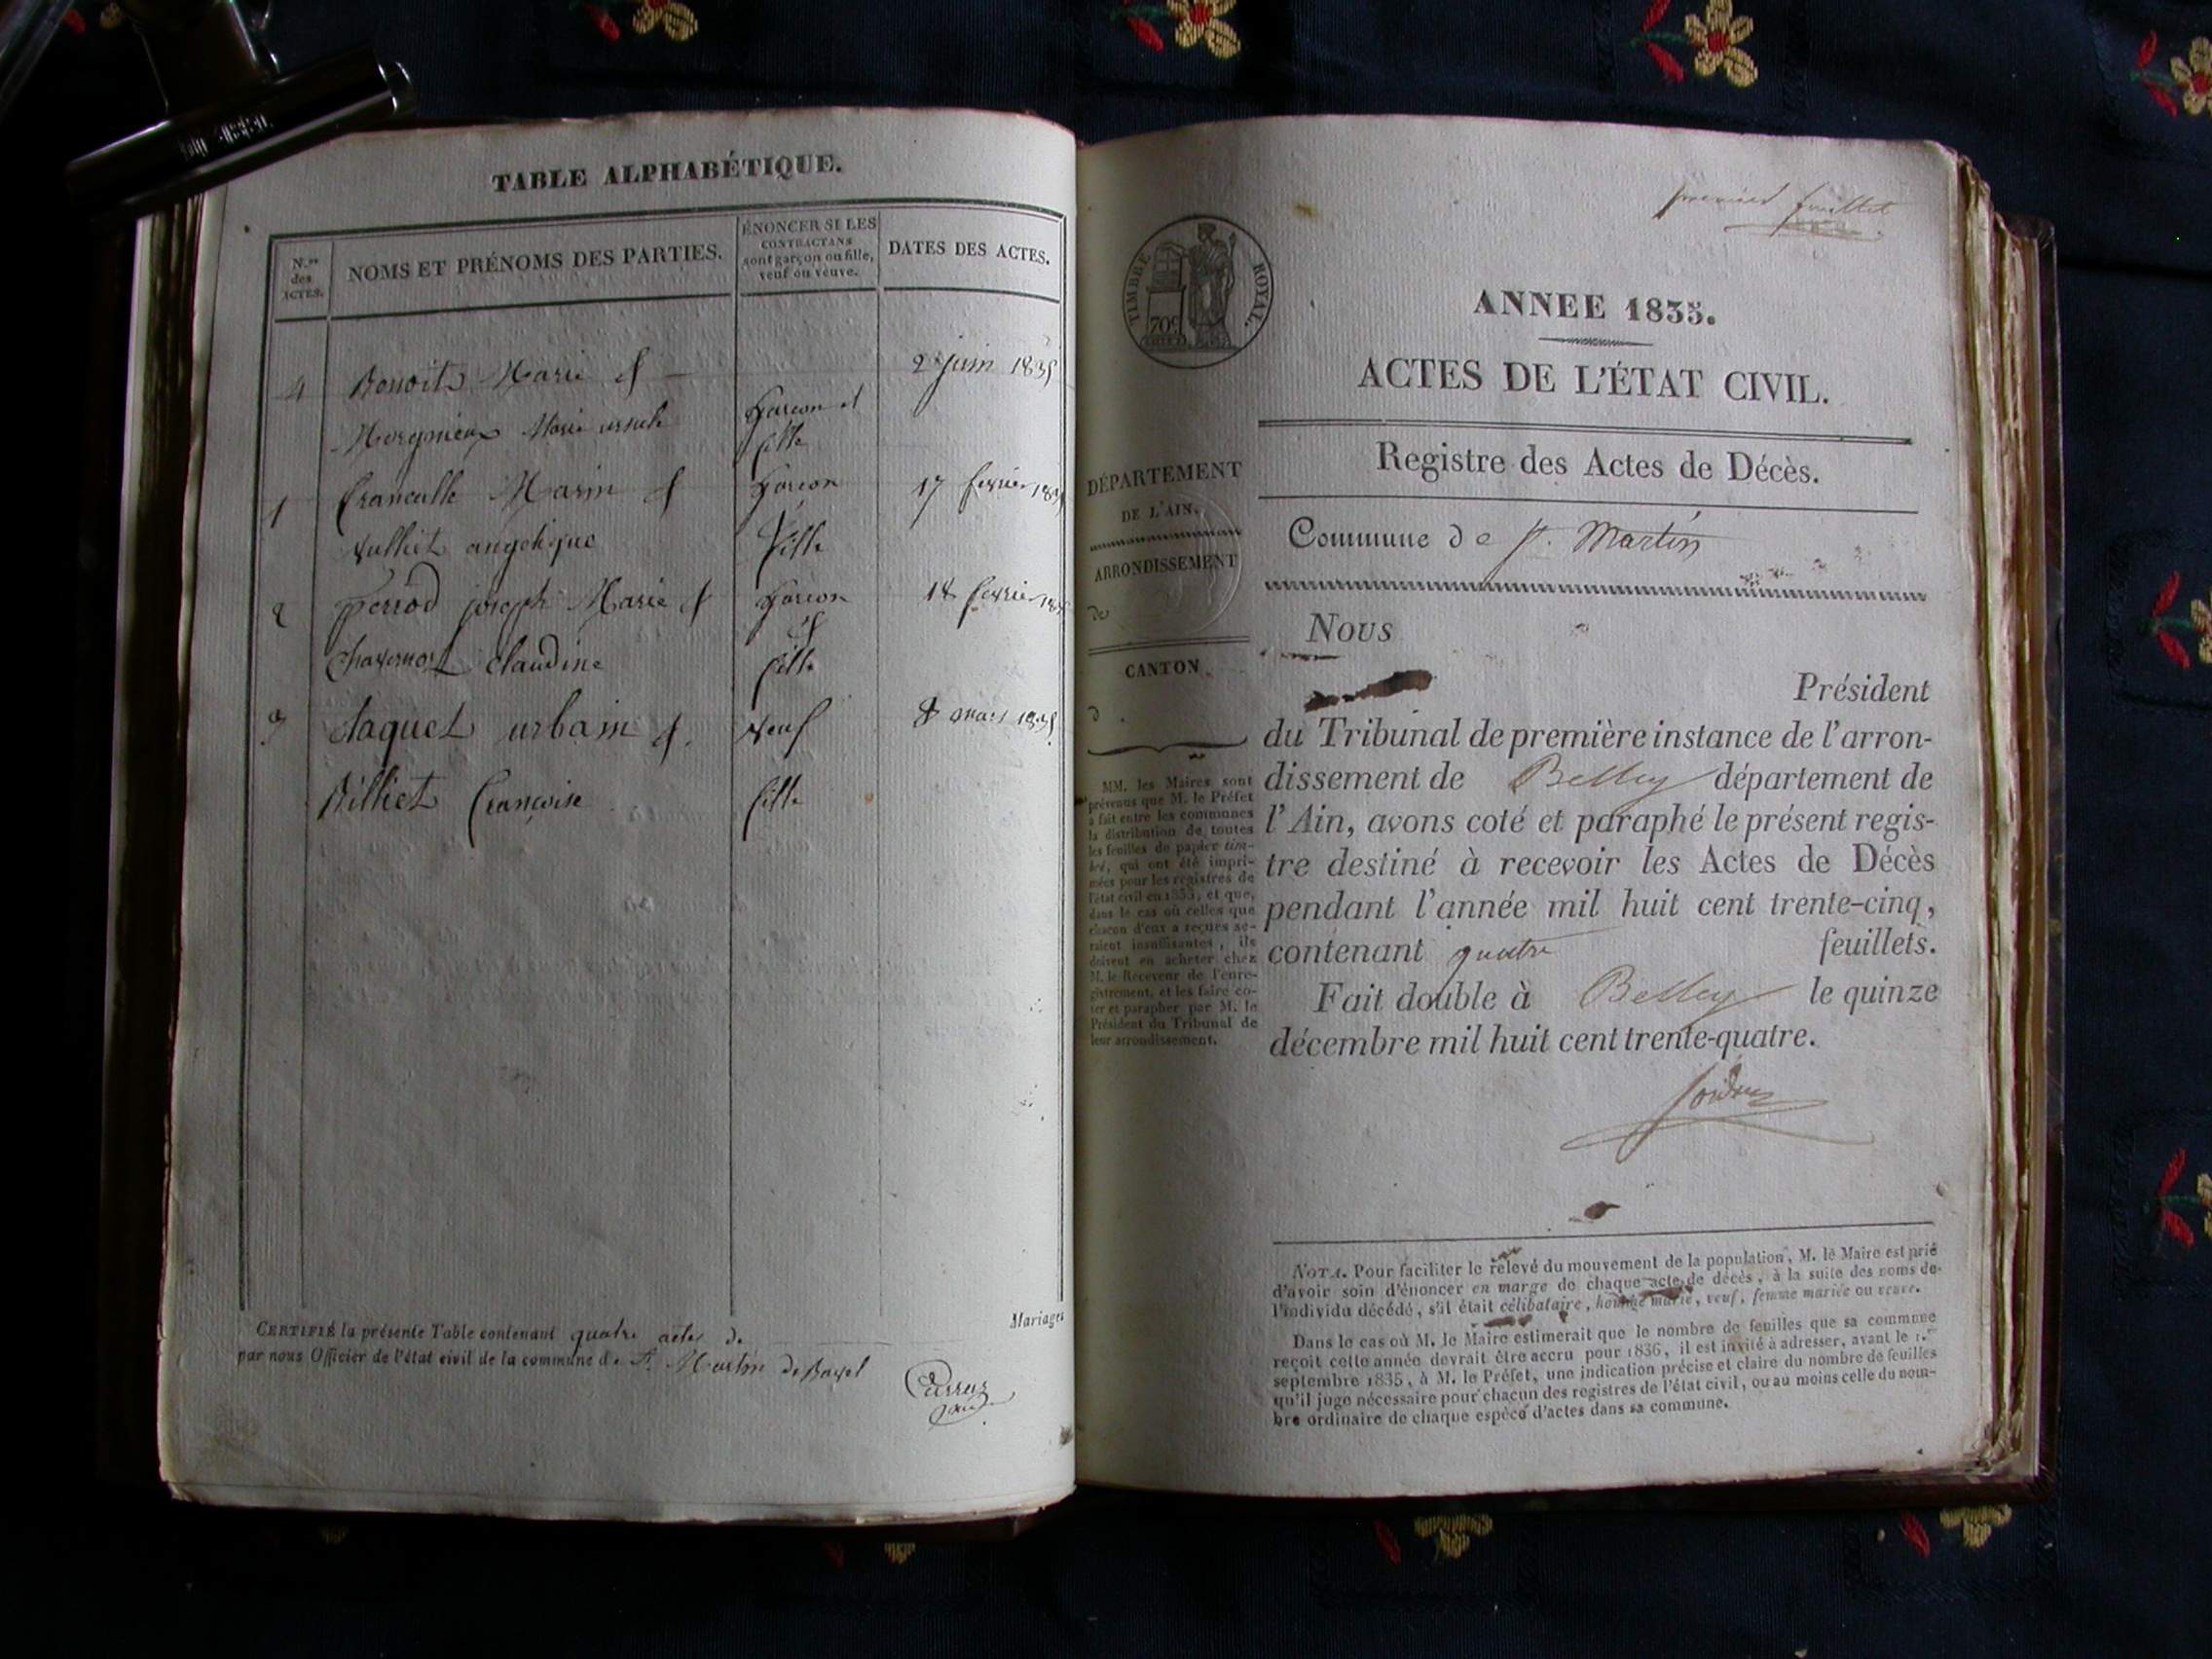 TABLE ALPHABÉTIQUE.
N.os des ACTES.
NOMS ET PRÉNOMS DES PARTIES.
ÉNONCER SI LES CONTRACTANS sont garçon ou fille, veuf ou veuve.
DATES DES ACTES.
4 Benoit Marie & 2 juin 1835
Marie ursule garcon et fille
1 Marin & garcon 17 fevrier 1835
Vulliet angelique fille
2 perrod joseph Marie & garcon 18 fevrier
et
claudine fille
3 Jaquet urbain &. veuf 8 mars 1835
Billiet françoise fille
Mariages
CERTIFIÉ la présente Table contenant quatre actes de
par nous Officier de l'état civil de la commune de St. Martin de Bavel
premier feuillet
TIMBRE ROYAL.
70c
ANNEE 1835.
ACTES DE L'ÉTAT CIVIL.
Registre des Actes de Décès.
Commune de St. Martin
DÉPARTEMENT
DE L'AIN.
ARRONDISSEMENT
de
CANTON
d
MM. les Maires sont
prévenus que M. le Préfet
a fait entre les communes
la distribution de toutes
les feuilles de papier tim-
bré, qui ont été impri-
mées pour les registres de
l'état civil en 1835, et que,
dans le cas où celles que
chacun d'eux a reçues se-
raient insuffisantes, ils
doivent en acheter chez
M. le Receveur de l'enre-
gistrement, et les faire co-
ter et parapher par M. le
Président du Tribunal de
leur arrondissement.
Nous
Président
du Tribunal de première instance de l'arron-
dissement de Belley département de
l'Ain, avons coté et paraphé le présent regis-
tre destiné à recevoir les Actes de Décès
pendant l'année mil huit cent trente-cinq,
contenant quatre feuillets.
Fait double à Belley le quinze
décembre mil huit cent trente-quatre.
NOTA. Pour faciliter le relevé du mouvement de la population, M. le Maire est prié
d'avoir soin d'énoncer en marge de chaque acte de décès, à la suite des noms de
l'individu décédé, s'il était célibataire, homme marié, veuf, femme mariée ou veuve.
Dans le cas où M. le Maire estimerait que le nombre de feuilles que sa commune
reçoit cette année devrait être accru pour 1836, il est invité à adresser, avant le 1.er
septembre 1835, à M. le Préfet, une indication précise et claire du nombre de feuilles
qu'il juge nécessaire pour chacun des registres de l'état civil, ou au moins celle du nom-
bre ordinaire de chaque espèce d'actes dans sa commune.